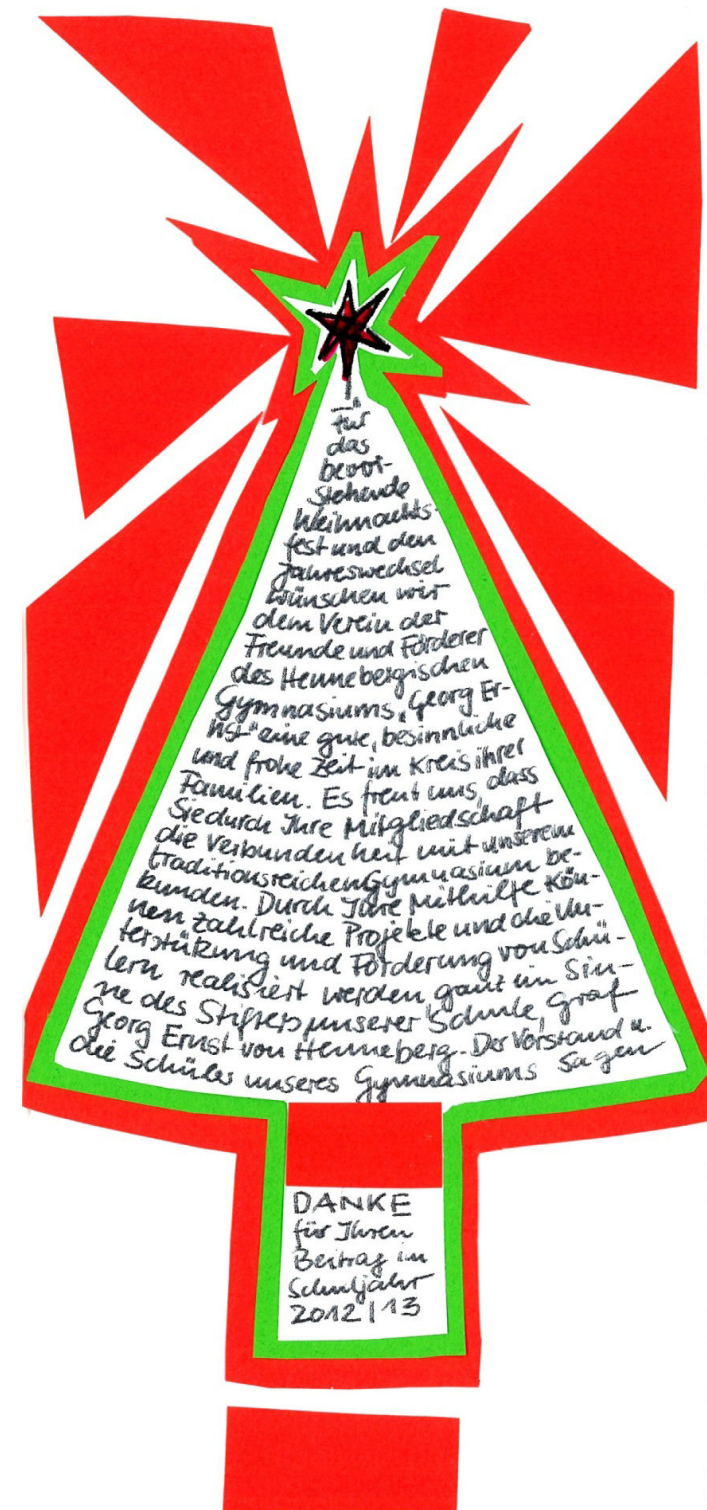 Für
das
bevor-
stehende
Weihnachts-
fest und den
Jahreswechsel
wünschen wir
dem Verein der
Freunde und Förderer
des Hennebergischen
Gymnasiums „Georg Er-
nst“ eine gute, besinnliche
und frohe Zeit im Kreis ihrer
Familien. Es freut uns, dass
Sie durch Ihre Mitgliedschaft
die Verbundenheit mit unserem
traditionsreichen Gymnasium be-
kunden. Durch Ihre Mithilfe kön-
nen zahlreiche Projekte und die Un-
terstützung und Förderung von Schü-
lern realisiert werden, ganz im Sin-
ne des Stifters unserer Schule, Graf
Georg Ernst von Henneberg. Der Vorstand u.
die Schüler unseres Gymnasiums sagen
DANKE
für Ihren
Beitrag im
Schuljahr
2012 | 13